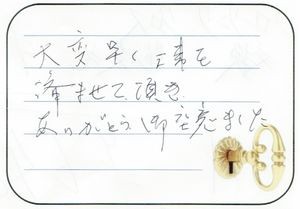 大変早く工事を
済ませて頂き
ありがとう御座ました